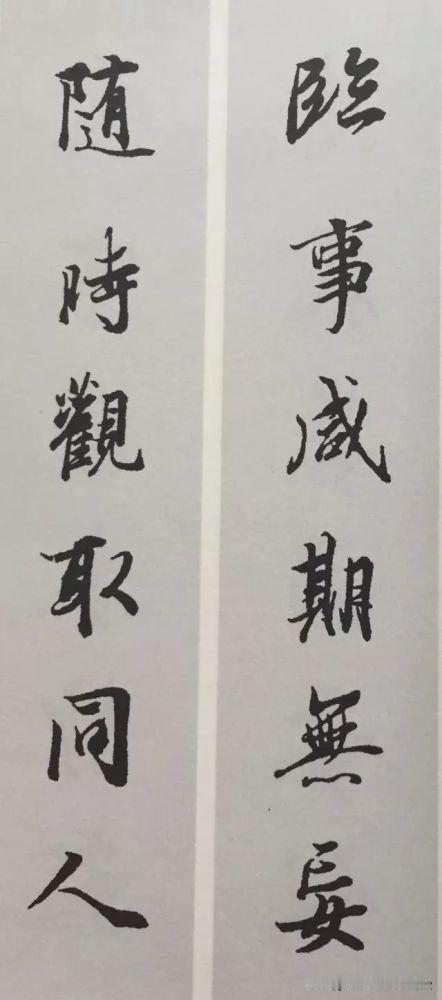 臨事咸期無妄
隨時觀取同人